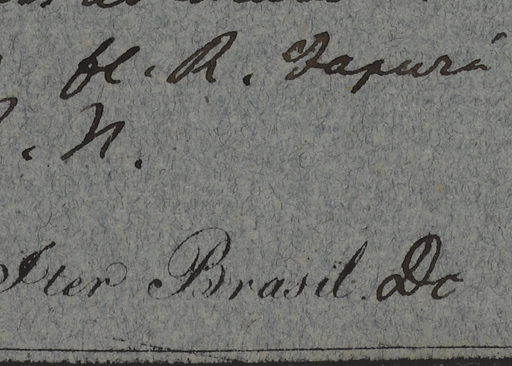 fl. R. Japurá
. N.
Iter Brasil. Dc